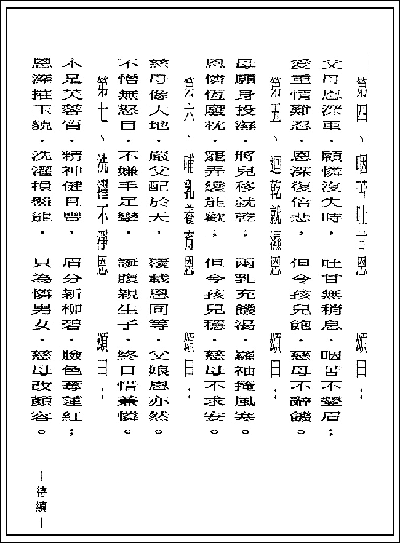 第四、咽苦吐甘恩　頌曰:
父母恩深重,顧憐沒失時,吐甘無稍息,咽苦不顰眉;
愛重情難忍,恩深復倍悲,但令孩兒飽,慈母不辭饑。
第五、迴乾就濕恩　頌曰:
母願身投濕,將兒移就乾,兩乳充饑渴,羅袖掩風寒;
恩憐恆廢枕,寵弄纔能歡,但令孩兒穩,慈母不求安。
第六、哺乳養育恩　頌曰:
慈母像大地,嚴父配於天,覆載恩同等,父娘恩亦然;
不憎無怒目,不嫌手足攣,誕腹親生子,終日惜兼憐。
第七、洗濯不淨恩　頌曰:
本是芙蓉質,精神健且豐,眉分新柳碧,臉色奪蓮紅;
恩深摧玉貌,洗濯損盤龍,只為憐男女,慈母改顏容。
—待續—